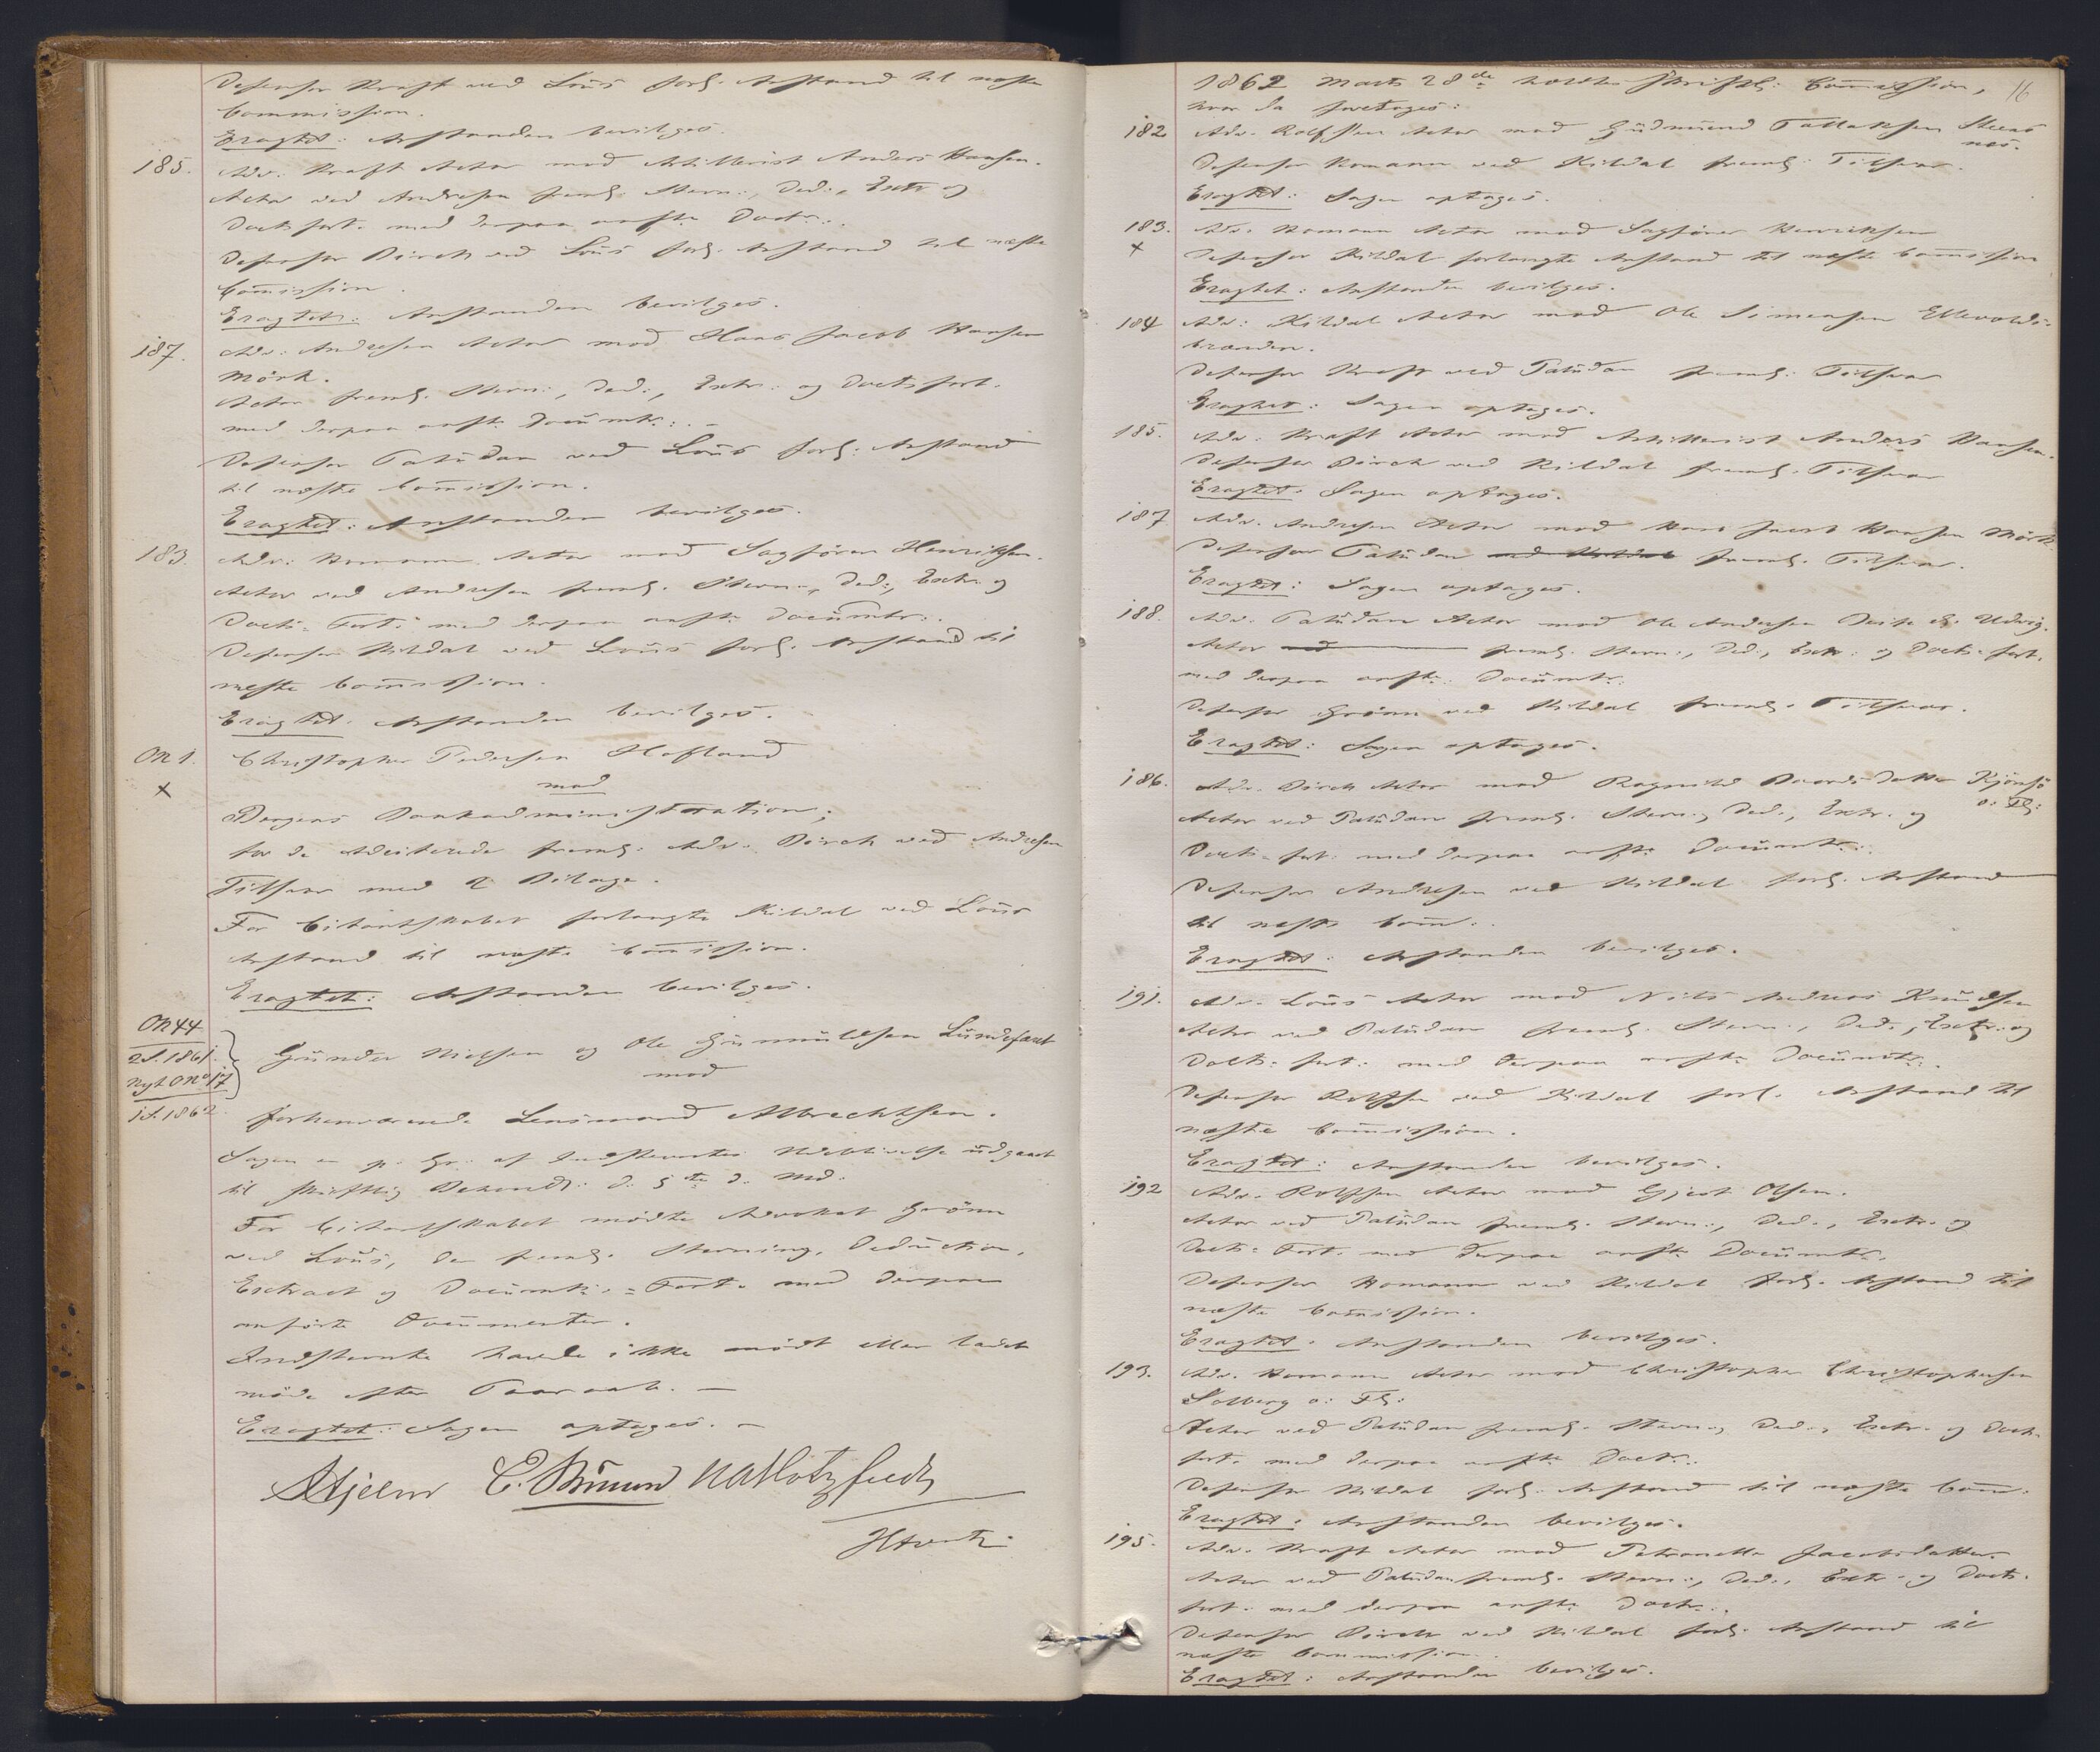 Defensor Kraft ved Lous forl. Anstand til næste
Commission.
Eragtet: Anstanden bevilges.
185. Adv. Kraft Actor mod Artillerist Anders Hansen.
Actor ved Andresen freml. Stevn:, Ded:, Extr og
Docts fort. med derpaa anfte Doctr:.
Defensor Dirch ved Lous forl. Anstand til næste
Commission.
Eragtet: Anstanden bevilges.
187. Adv: Andresen Actor mod Hans Jacob Hansen
Mörk.
Actor freml. Stevn:, Ded:, Extr: og Docts fort.
med derpaa anfte Documtr:. –
Defensor Paludan ved Lous forl: Anstand
til næste Commission.
Eragtet: Anstanden bevilges.
183. Adv: Homann Actor mod Sagförer Henriksen.
Actor ved Andresen freml. Stevn:, Ded:, Extr. og
Docts= Fort: med derpaa anfte Documtr:.
Defensor Kildal ved Lous forl. Anstand til
næste Commission.
Eragtet. Anstanden bevilges.
ON 1. Christopher Pedersen Hofland
x mod
Bergens Bankadministration;
for de Adciterede freml. Adv. Dirch ved Andresen
Tilsvar med 2 Bilage.
For Citantskabet forlangte Kildal ved Lous
Anstand til næste Commission.
Eragtet: Anstanden bevilges.
ON 44
2 S. 1861.
Nyt ON 17
1 S. 1862.
Gunder Nielsen og Ole Gunnuldsen Lundefaret
mod
forhenværende Lensmand Albrechtsen.
Sagen er p. Gr: af Indstevntes Udeblivelse udgaaet
til skriftlig Behandl: d: 5te d. Md.
For Citantskabet mödte Advokat Grönn
ved Lous, der freml. Stevning, Deduction,
Extract og Documts:= Fort. med derpaa
anförte Documenter.
Indstevnte havde ikke mödt eller ladet
möde efter Paaraab. –
Eragtet: Sagen optages. –
Hjelm E. Bruun Hambötzfeldt
16
1862 Marts 28de holdtes skriftl: Commission,
hvor da foretages:
182 Adv. Rolfsen Actor mod Gudmund Tallaksen Steens
næs.
Defensor Homann ved Kildal freml: Tilsvar.
Eragtet: Sagen optages.
183. Adv. Homann Actor mod Sagförer Henriksen
x Defensor Kildal forlangte Anstand til næste Commission
Eragtet: Anstanden bevilges.
184 Adv: Kildal Actor mod Ole Simensen Ellevolds=
brænden.
Defensor Kraft ved Paludan freml: Tilsvar
Eragtet: Sagen optages.
185. Adv. Kraft Actor mod Artillerist Anders Hansen.
Defensor Dirch ved Kildal freml. Tilsvar
Eragtet: Sagen optages.
187 Adv. Andresen Actor mod Hans Jacob Hansen Mörk
Defensor Paludan ved Kildal freml. Tilsvar.
Eragtet: Sagen optages.
188. Adv. Paludan Actor mod Ole Andersen
Actor ved freml. Stevn:, Ded:, Extr: og Docts= fort.
med derpaa anfte: Documtr:
Defensor Grönn ved Kildal freml. Tilsvar.
Eragtet: Sagen optages.
186. Adv. Dirch Actor mod Ragnild Baards datter Kjönsö
o: Fl:
Actor ved Paludan freml. Stevn:, Ded:, Extr. og
Docts= fort: med derpaa anfte Documtr:.
Defensor Andresen ved Kildal forl. Anstand
til næste Comm:.
Eragtet: Anstanden bevilges.
191. Adv. Lous Actor mod Nils Andreas Knudsen
Actor ved Paludan freml. Stevn:, Ded:, Extr: og
Docts= fort: med derpaa anfte Documtr:.
Defensor Rolfsen ved Kildal forl. Anstand til
næste Commission.
Eragtet: Anstanden bevilges.
192 Adv. Rolfsen Actor mod Gjert Olsen.
Actor ved Paludan freml. Stevn:, Ded:, Extr. og
Docts= Fort. med derpaa anfte Documtr.
Defensor Homann ved Kildal forl. Anstand til
næste Commission.
Eragtet: Anstanden bevilges.
193. Adv. Homann Actor mod Christopher Christophersen
Solberg o: Fl:
Actor ved Paludan freml. Stevn:, Ded:, Extr. og Docts=
fort. med derpaa anfte Doctr:.
Defensor Kildal forl. Anstand til næste Comm:
Eragtet: Anstanden bevilges.
195. Adv. Kraft Actor mod Petronelle Jacobsdatter.
Actor ved Paludan freml. Stevn:, Ded:, Extr. og Docts=
fort. med derpaa anfte Doctr:.
Defensor Dirch ved Kildal forl. Anstand til
næste Commission.
Eragtet: Anstanden bevilges.